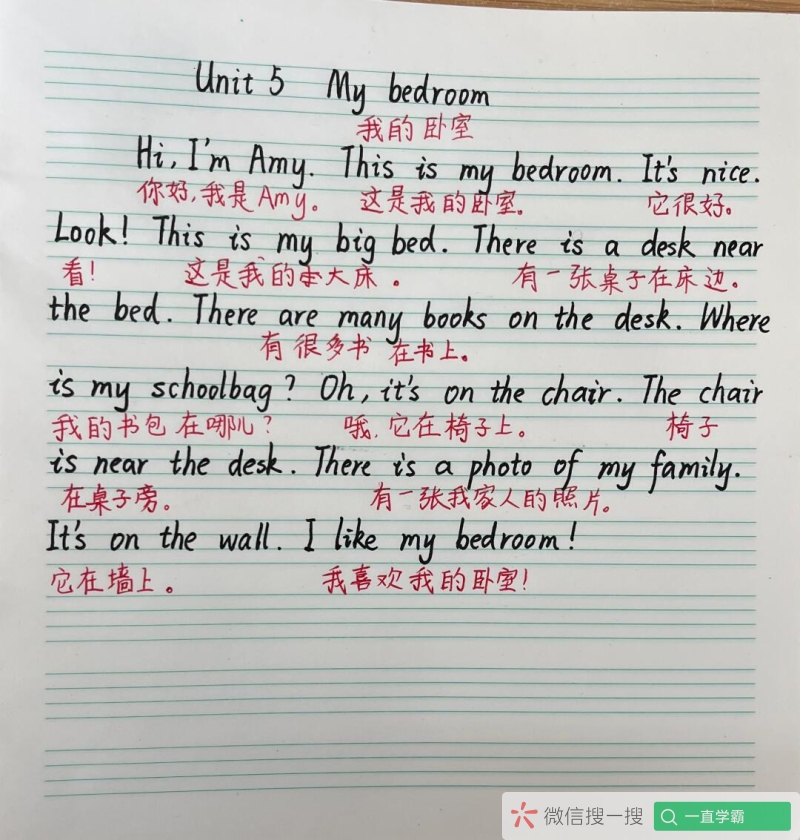 Unit 5 My bedroom
我的卧室
Hi, I'm Amy. This is my bedroom. It's nice.
你好,我是Amy。 这是我的卧室。 它很好。
Look! This is my big bed. There is a desk near
看! 这是我的大床。 有一张桌子在床边。
the bed. There are many books on the desk. Where
有很多书 在书上。
is my schoolbag? Oh, it's on the chair. The chair
我的书包在哪儿? 哦,它在椅子上。 椅子
is near the desk. There is a photo of my family.
在桌子旁。 有一张我家人的照片。
It's on the wall. I like my bedroom!
它在墙上。 我喜欢我的卧室!
微信搜一搜 一直学霸